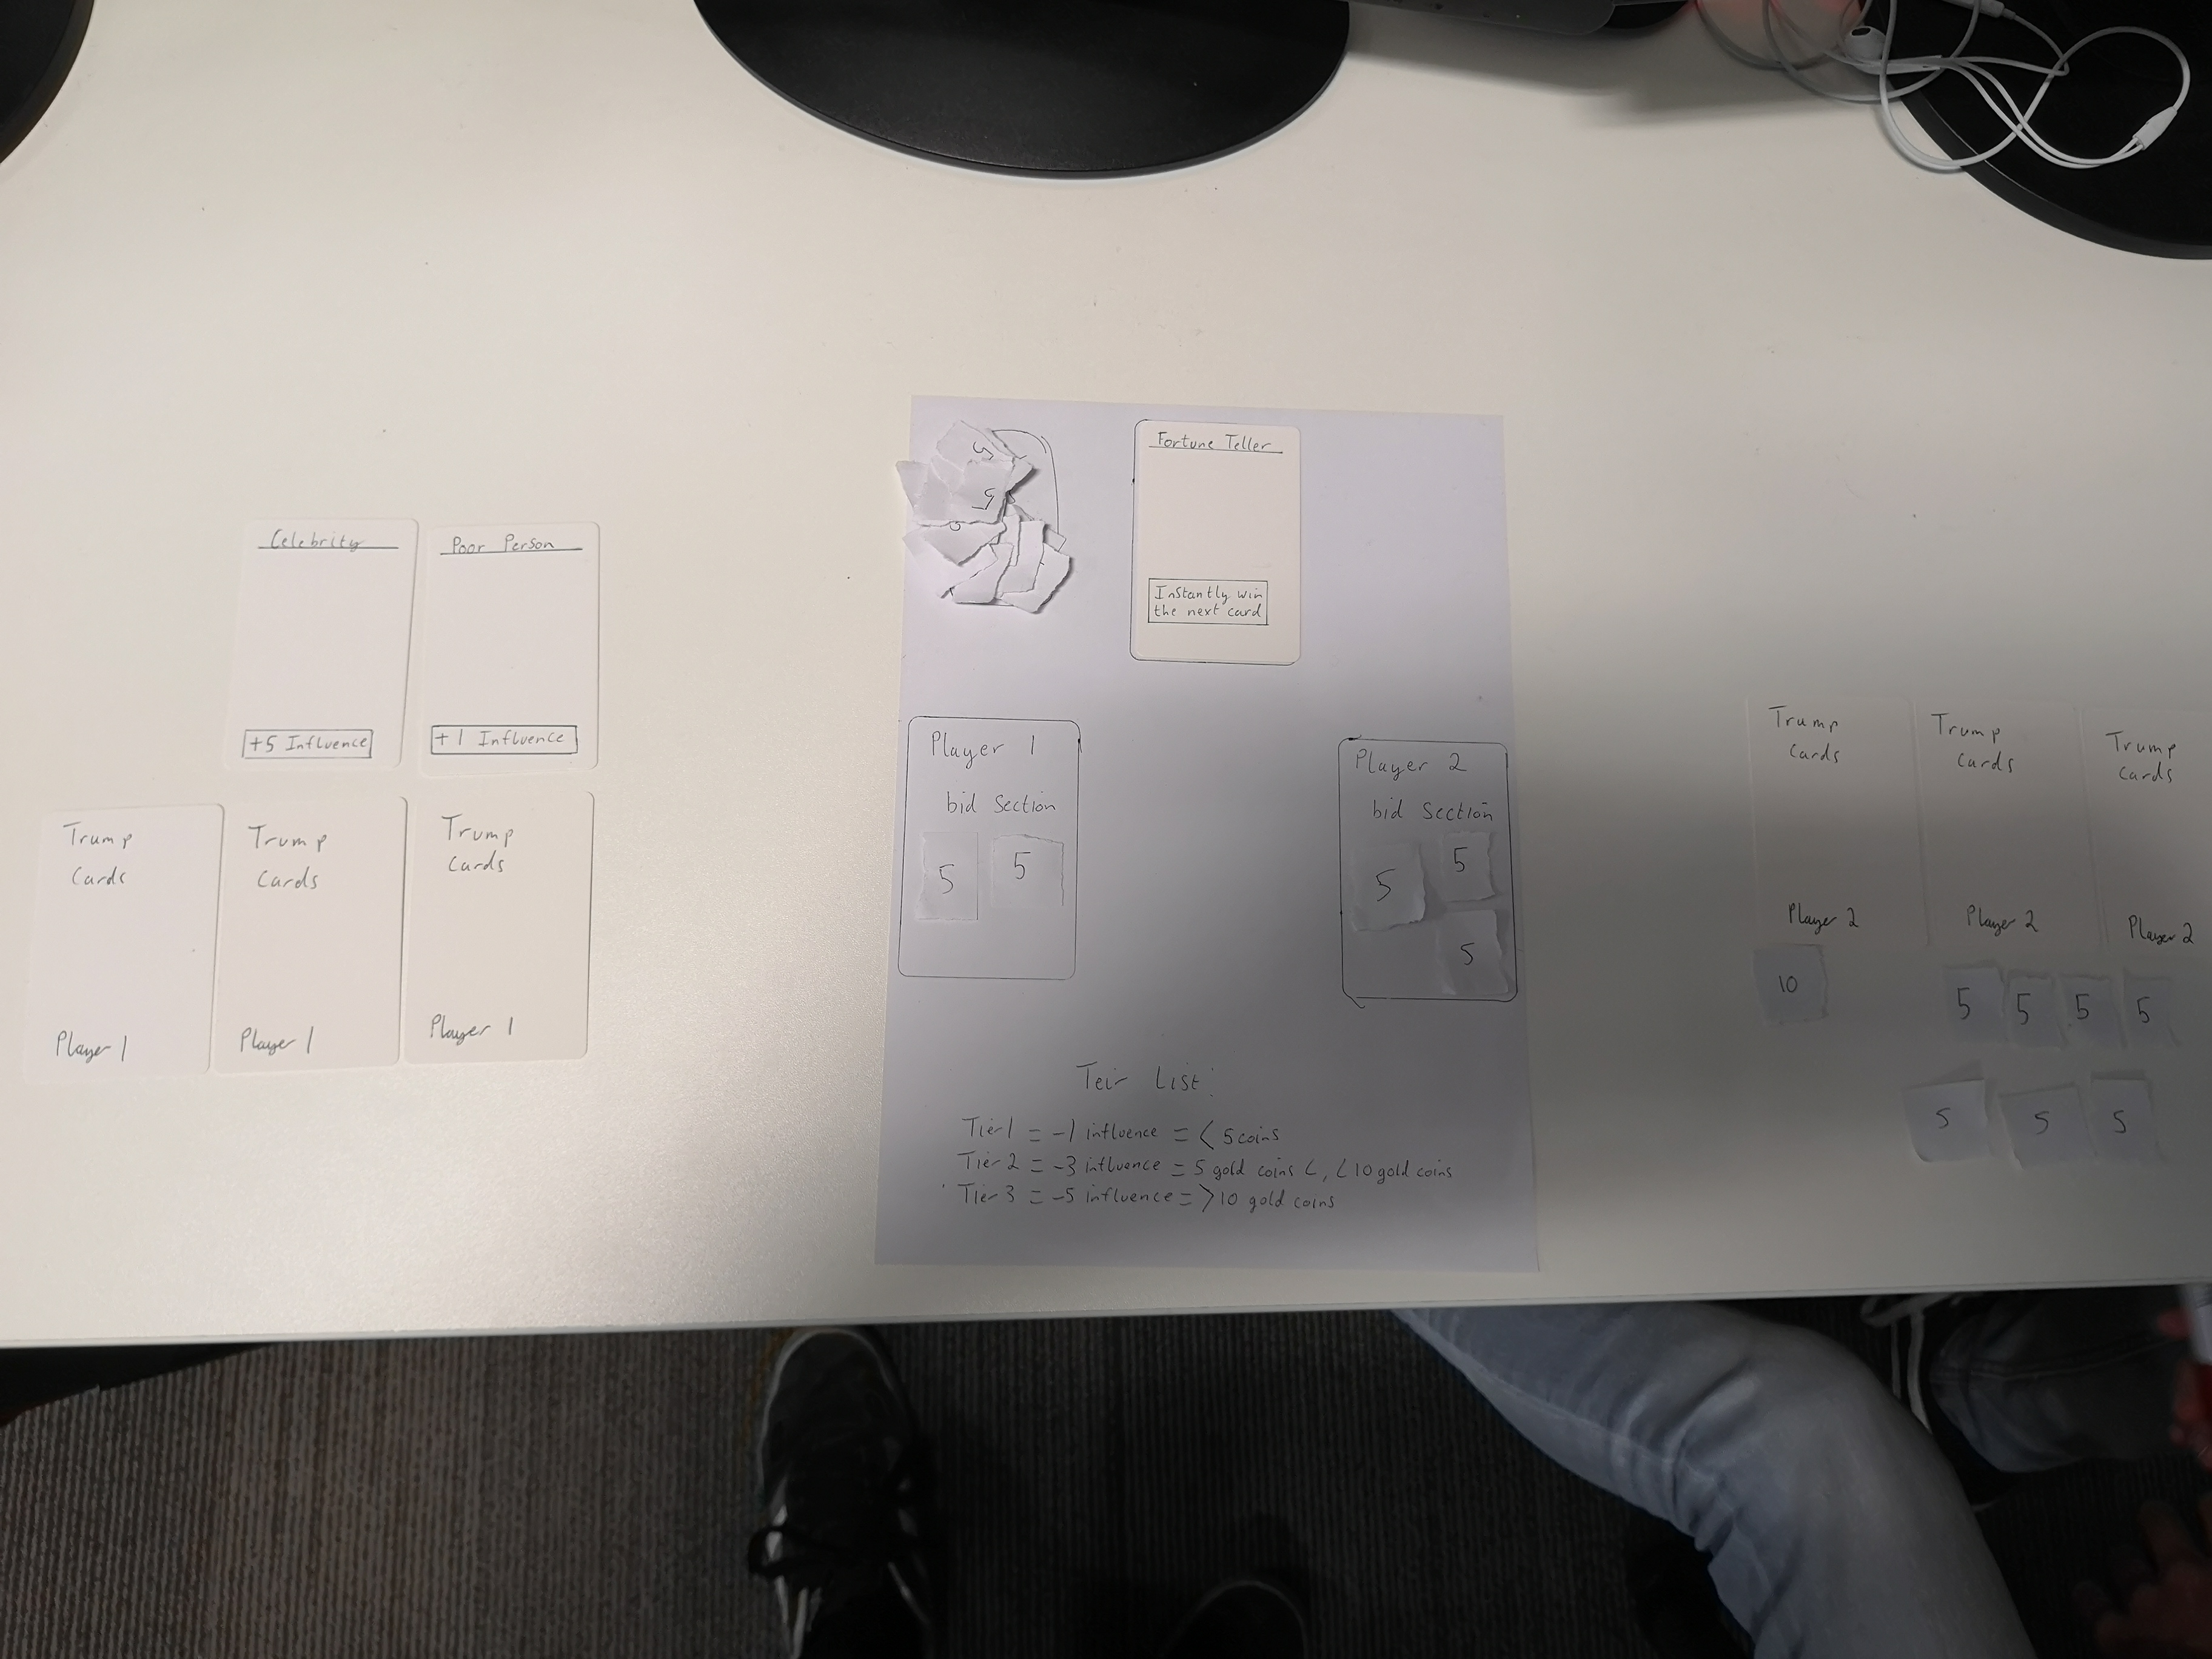 Celebrity
+5 Influence
Poor Person
+1 Influence
Trump
Cards
Player 1
Trump
Cards
Player 1
Trump
Cards
Player 1
5
5
Fortune Teller
Instantly win
the next card
Player 1
bid Section
5
5
Player 2
bid Section
5
5
5
Teir List:
Tier 1 = -1 influence = < 5 coins
Tier 2 = -3 influence = 5 gold coins <, < 10 gold coins
Tier 3 = -5 influence = > 10 gold coins
Trump
Cards
Player 2
Trump
Cards
Player 2
Trump
Cards
Player 2
10
5
5
5
5
5
5
5